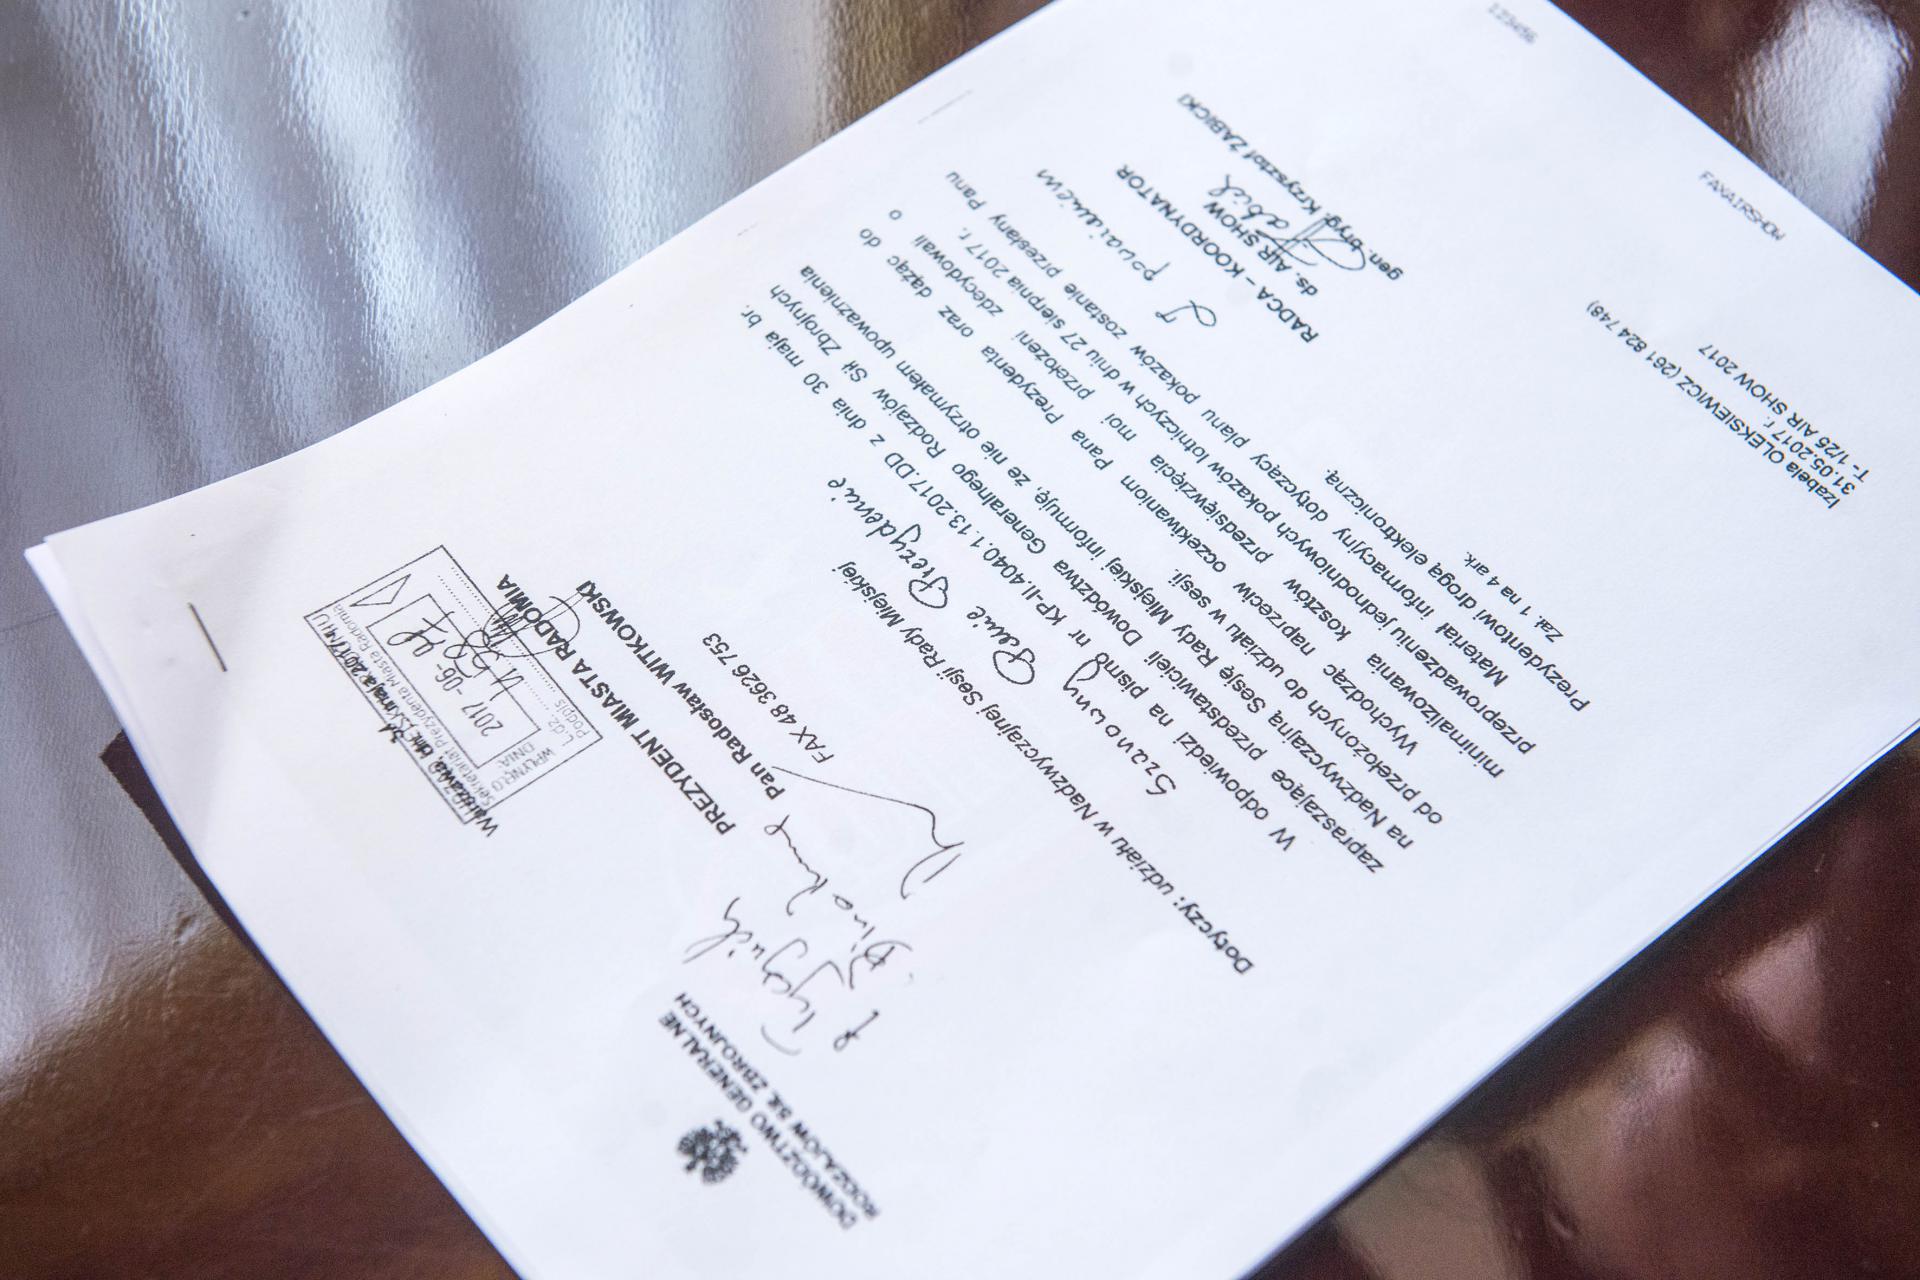 DOWÓDZTWO GENERALNE
RODZAJÓW SIŁ ZBROJNYCH
Warszawa, dnia
WPŁYNĘŁO
Sekretariat Prezydenta Miasta Radomia
DNIA:
2017 -06- 01
L.dz.
Podpis
PREZYDENT MIASTA RADOMIA
Pan Radosław WITKOWSKI
FAX 48 3626 753
Dotyczy: udziału w Nadzwyczajnej Sesji Rady Miejskiej
Szanowny Panie Prezydencie
W odpowiedzi na pismo nr KP-II.4040.1.13.2017.DD z dnia 30 maja br.
zapraszające przedstawicieli Dowództwa Generalnego Rodzajów Sił Zbrojnych
na Nadzwyczajną Sesję Rady Miejskiej informuję, że nie otrzymałem upoważnienia
od przełożonych do udziału w sesji.
Wychodząc naprzeciw oczekiwaniom Pana Prezydenta oraz dążąc do
minimalizowania kosztów przedsięwzięcia moi przełożeni zdecydowali o
przeprowadzeniu jednodniowych pokazów lotniczych w dniu 27 sierpnia 2017 r.
Materiał informacyjny dotyczący planu pokazów zostanie przesłany Panu
Prezydentowi drogą elektroniczną.
Zał. 1 na 4 ark.
Z poważaniem
RADCA – KOORDYNATOR
ds. AIR SHOW
gen. bryg. Krzysztof ŻABICKI
Izabela OLEKSIEWICZ (261 824 748)
31.05.2017 r.
T- 1/25 AIR SHOW 2017
FAXAIRSHOW